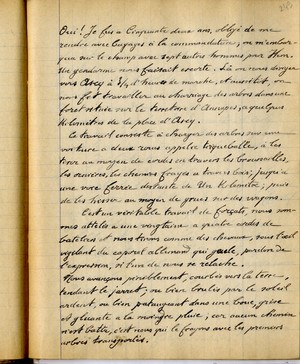 Oui! Je fus a Cinquante deux ans, obligé de me
rendre avec bagages à la commandature, on m'embar-
qua sur le champ avec sept autres hommes par
Un gendarme nous faisait escorte. De là on nous dirigea
vers Ascq à ¾ d'heures de marche, et aussitôt, on
nous fit travailler au chargeage des arbres dans une
forêt située sur le territoire d'Annapes, à quelques
kilomètres de la place d'Ascq.
Le travail consiste à charger des arbres sur une
voiture à deux roues appelée triqueballe, à les
tirer au moyen de cordes en travers les broussailles,
les ornières, les chemins frayés à travers bois, jusqu'à
une voie ferrée distante de Un kilomètre, puis
de les hisser au moyen de grues sur des wagons.
C'est un véritable travail de forçats, nous som-
mes attelés à une vingtaine à grandes cordes de
bateliers et nous tirons comme des chevaux, sous l'œil
vigilant du caporal allemand qui gueule, pardon de
l'expression, si l'un de nous se relâche.
Nous avançons péniblement, courbés vers la terre,
tendant le jarret, ou bien brûlés par le soleil
ardent, ou bien pataugeant dans une boue grise
et gluante à la moindre pluie; car aucun chemin
n'est battu, c'est nous qui le frayons avec les premiers
arbres transportés.